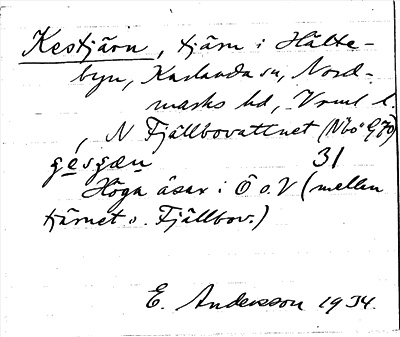 Kestjärn, tjärn i Hälte-
byn, Karlanda sn, Nord-
marks hd, Vrml l.
N Fjällbovattnet (Nbo G70)
gésgæn 31
Höga åsar i Ö o. V (mellan
tjärnet o. Fjällbov.)
E. Andersson 1934.